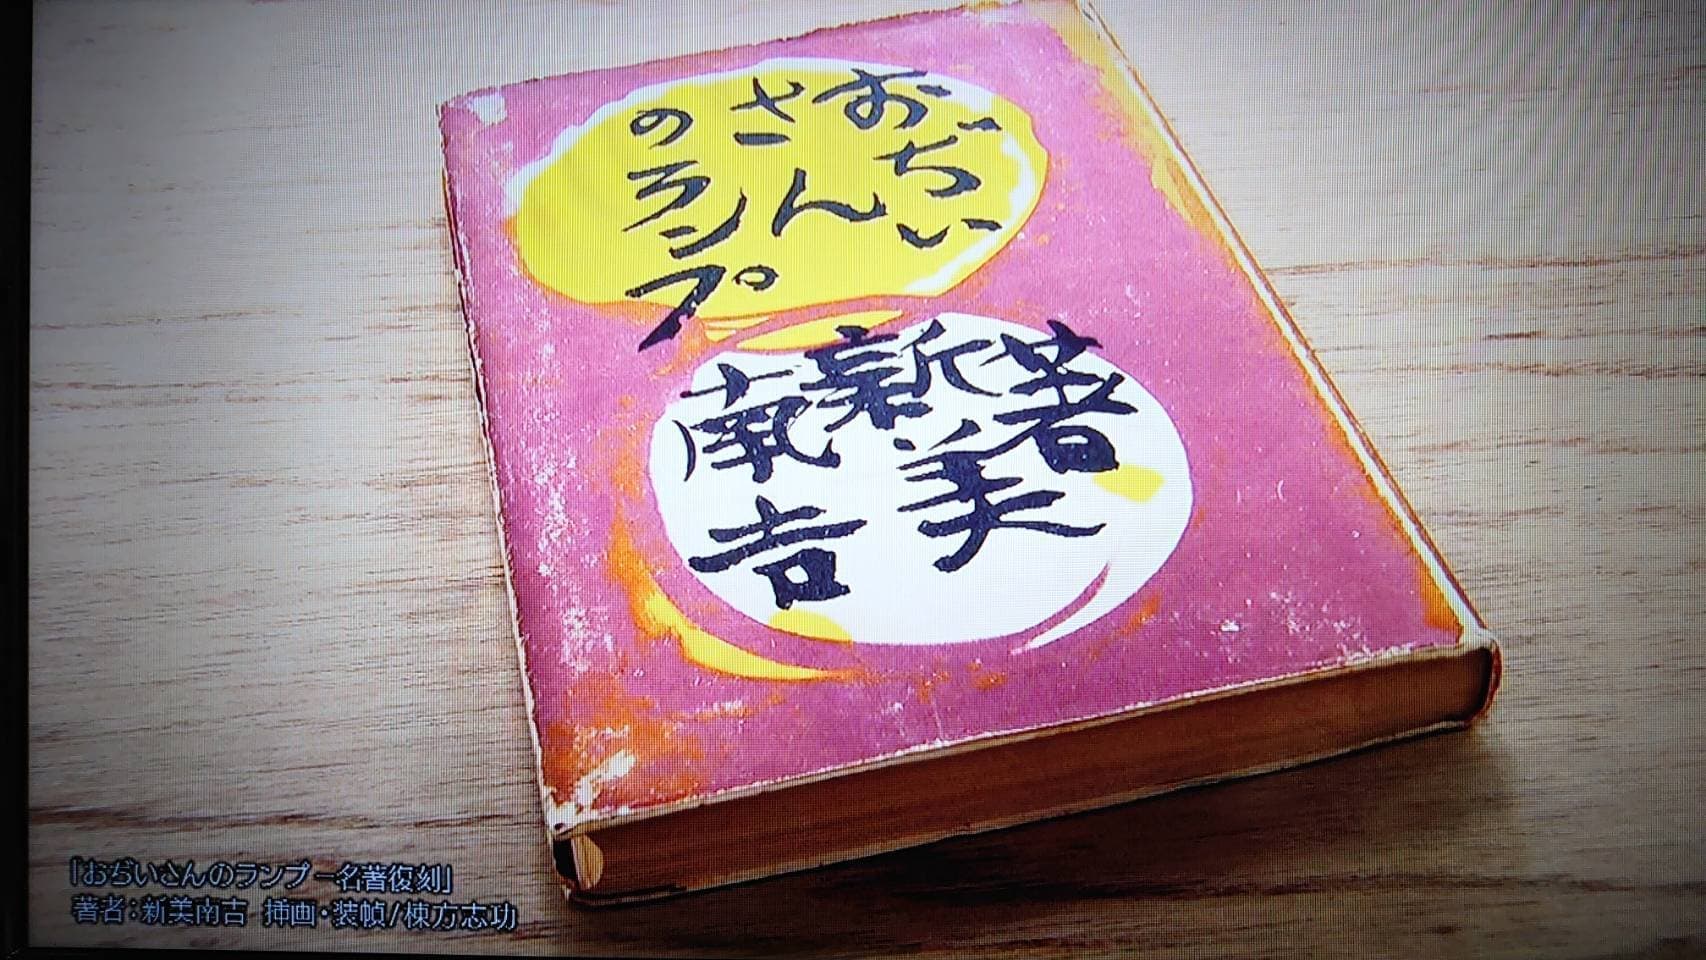 おぢい
さん
のランプ
著
新美
南吉
「おぢいさんのランプ －名著復刻」
著者：新美南吉 挿画・装幀/棟方志功